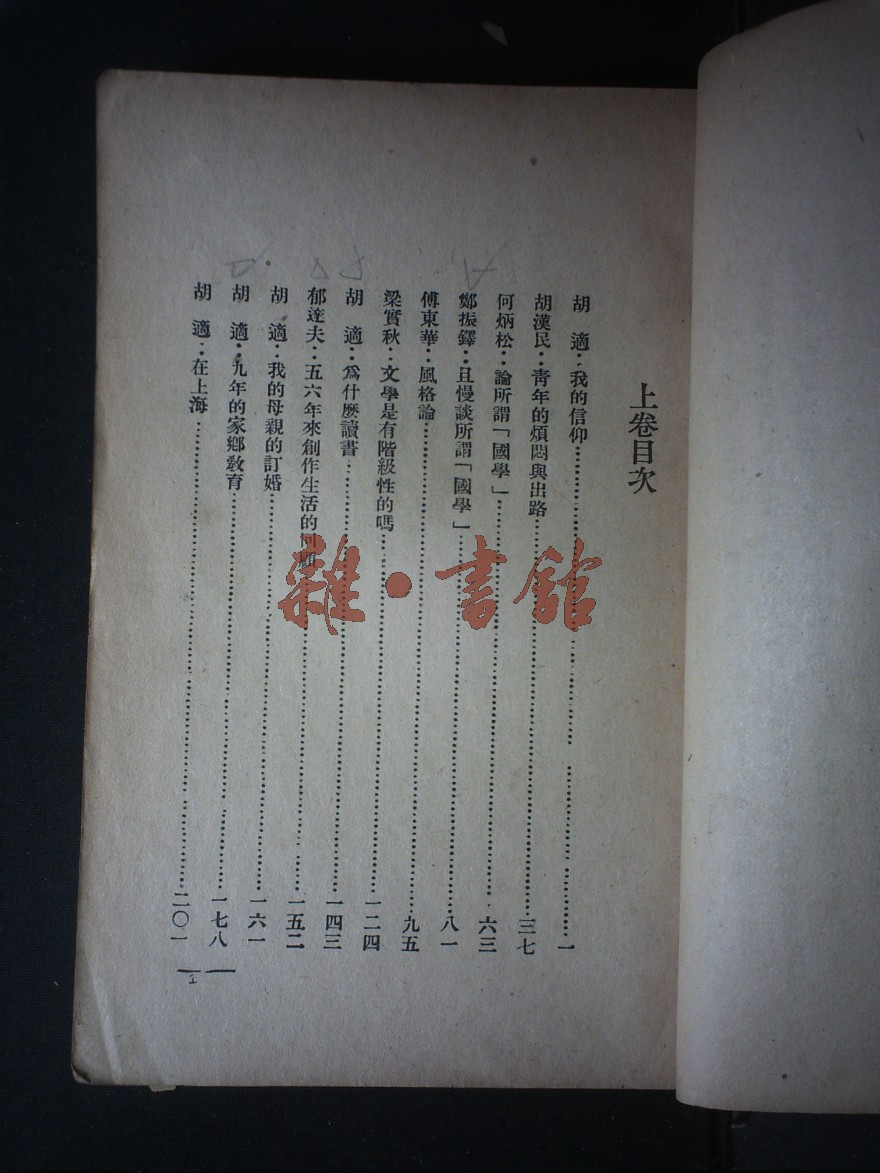 上卷目次
胡　適：我的信仰……一
胡漢民：靑年的煩悶與出路……三七
何炳松：論所謂「國學」……六三
鄭振鐸：且慢談所謂「國學」……八一
傅東華：風格論……九五
梁實秋：文學是有階級性的嗎……一二四
胡　適：爲什麼讀書……一四三
郁達夫：五六年來創作生活的回顧……一五二
胡　適：我的母親的訂婚……一六一
胡　適：九年的家鄉敎育……一七八
胡　適：在上海……二〇一
雜·書館